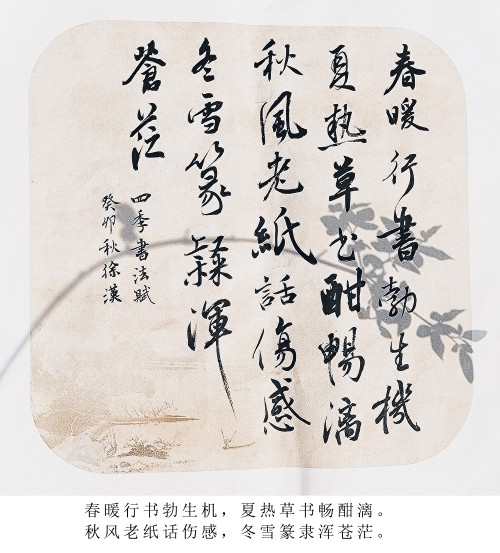 春暖行書勃生機
夏熱草书酣暢漓
秋風老紙話傷感
冬雪篆隸渾
蒼茫
四季書法賦
癸卯秋徐漢
春暖行书勃生机，夏热草书畅酣漓。
秋风老纸话伤感，冬雪篆隶浑苍茫。